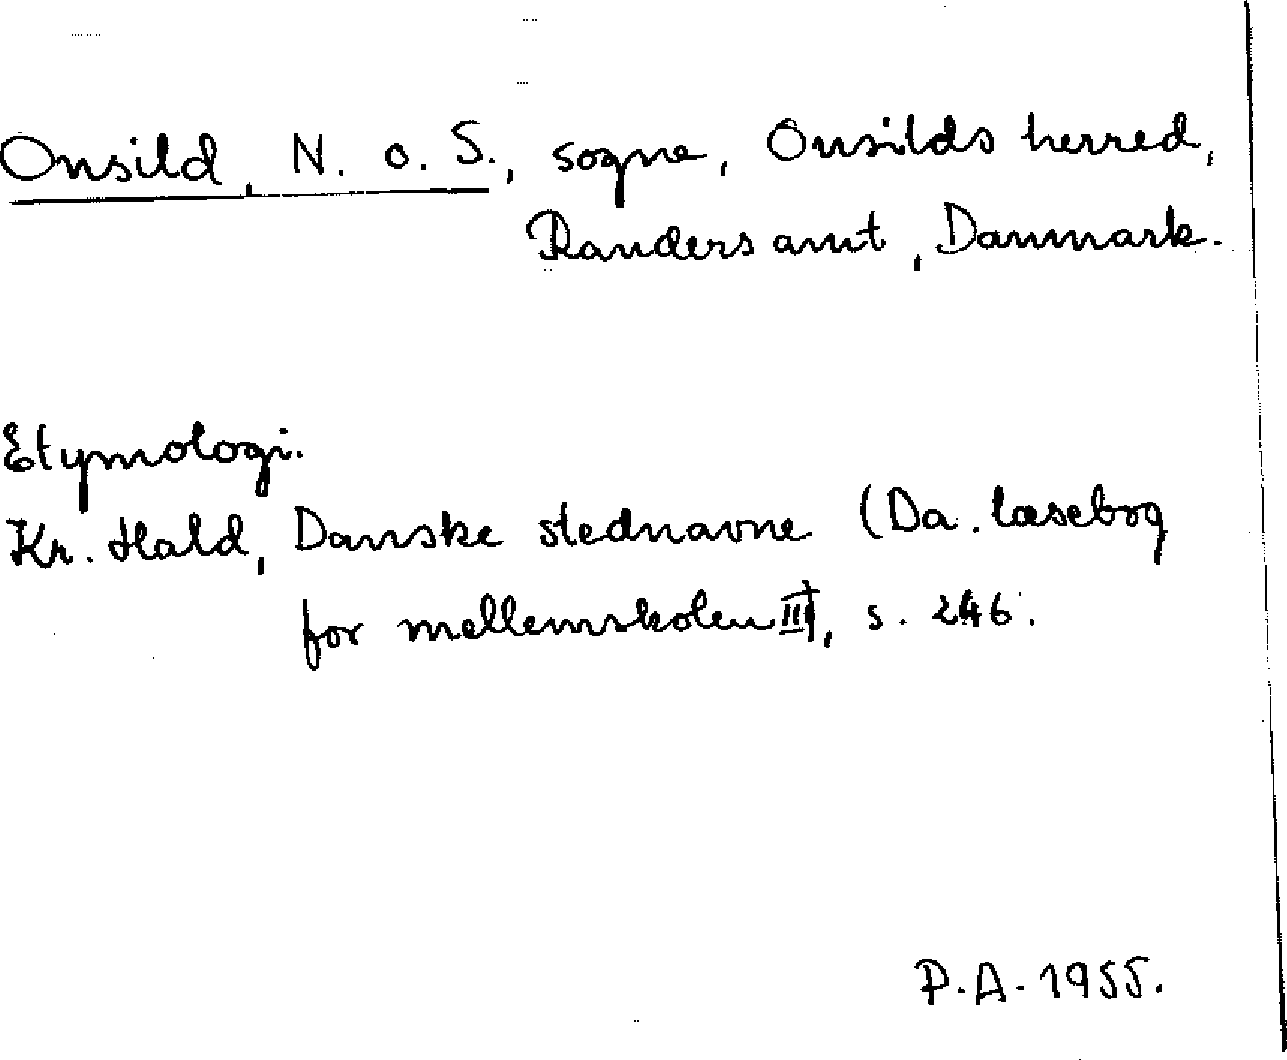 Onsild, N. o. S., sogne, Onsilds herred,
Randers amt, Danmark.
Etymologi.
Kr. Hald, Danske stednavne (Da. læsebog
for mellemskolen III), s. 246.
P.A. 1955.